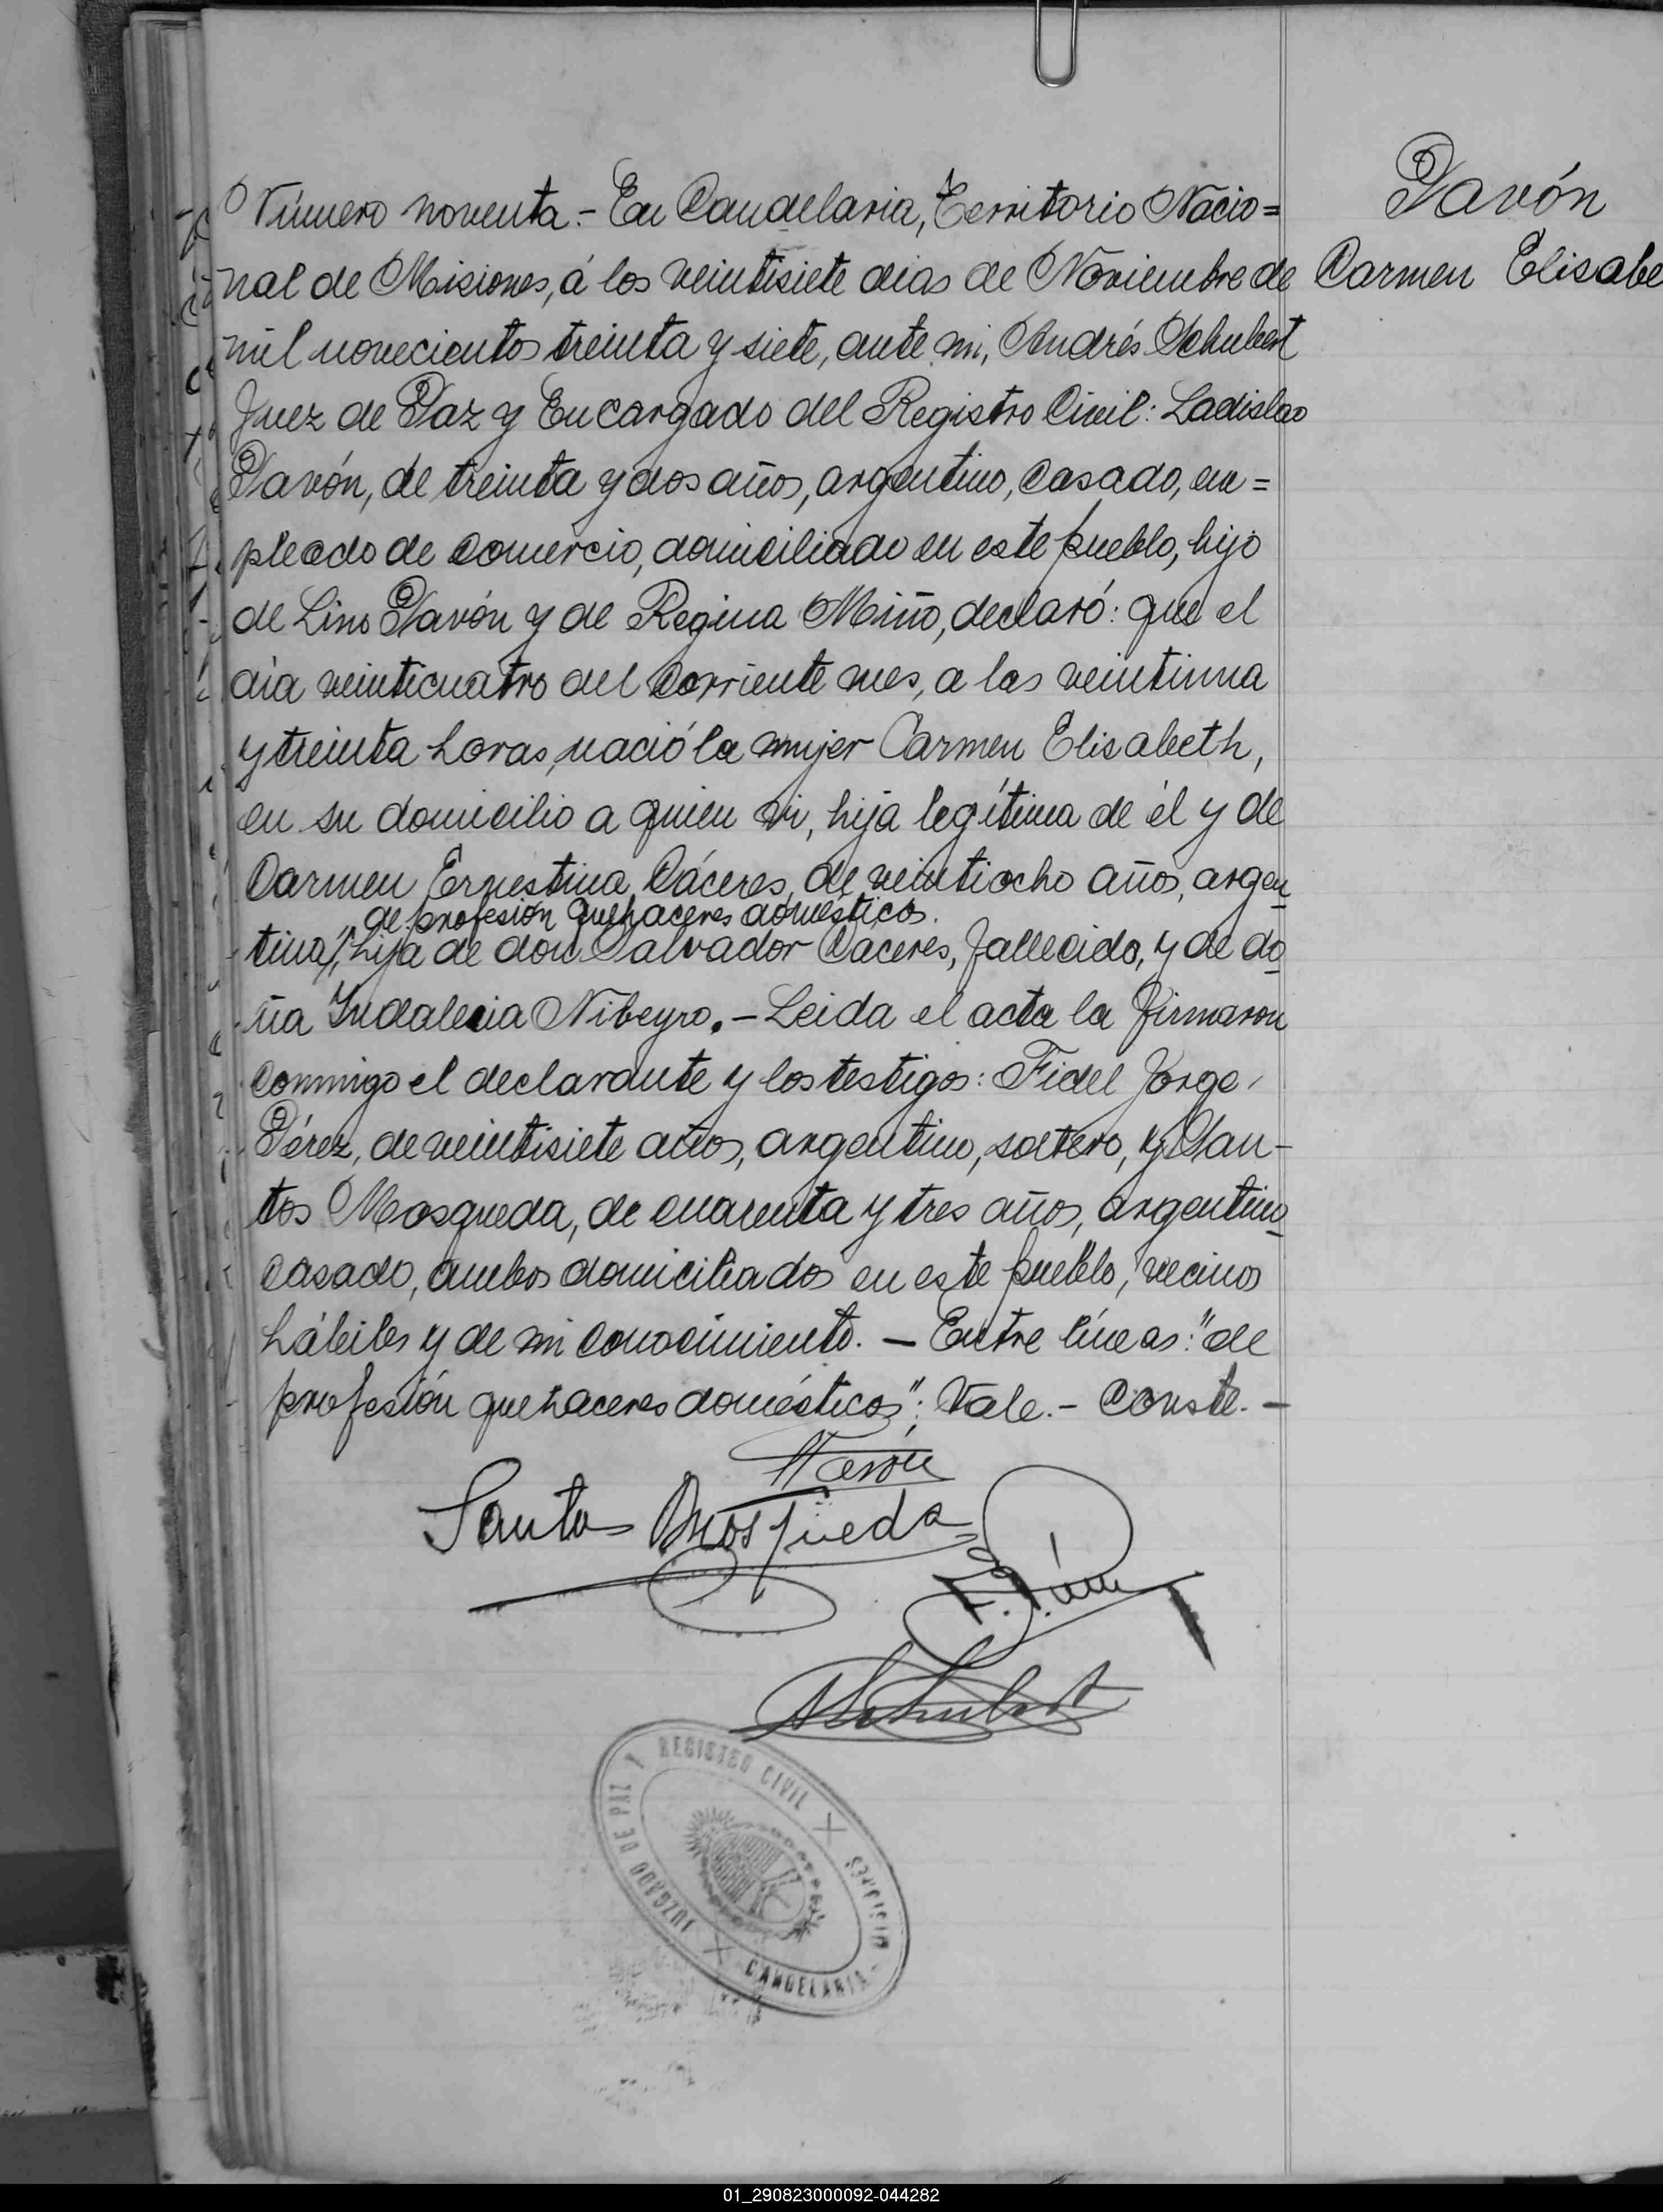 Pavón
Carmen Elisabe
Número noventa.- En Candelaria, Territorio Nacio=
nal de Misiones, á los veintisiete dias de Noviembre de
mil novecientos treinta y siete, ante mi, Andrés Schubert
Juez de Paz y Encargado del Registro Civil: Ladislao
Pavón, de treinta y dos años, argentino, casado, em=
pleado de comercio, domiciliado en este pueblo, hijo
de Lino Pavón y de Regina Miño, declaró: que el
dia veinticuatro del corriente mes, a las veintiuna
y treinta horas, nació la mujer Carmen Elisabeth,
en su domicilio a quien vi, hija legítima de él y de
Carmen Ernestina Cáceres, de veintiocho años, argen
de profesión quehaceres domésticos.
tina, hija de don Salvador Cáceres, fallecido, y de do
ña Indalecia Nibeyro.- Leida el acta la firmaron
conmigo el declarante y los testigos: Fidel Jorge
Pérez, de veintisiete años, argentino, soltero, y San-
tos Mosqueda, de cuarenta y tres años, argentino
casado, ambos domiciliados en este pueblo, vecinos
hábiles y de mi conocimiento. - Entre líneas: "de
profesión quehaceres domésticos": Vale.- Conste.-
Pavón
Santos Mosqueda
ASchubert
JUZGADO DE PAZ Y REGISTRO CIVIL
CANDELARIA - MISIONES
01_290823000092-044282